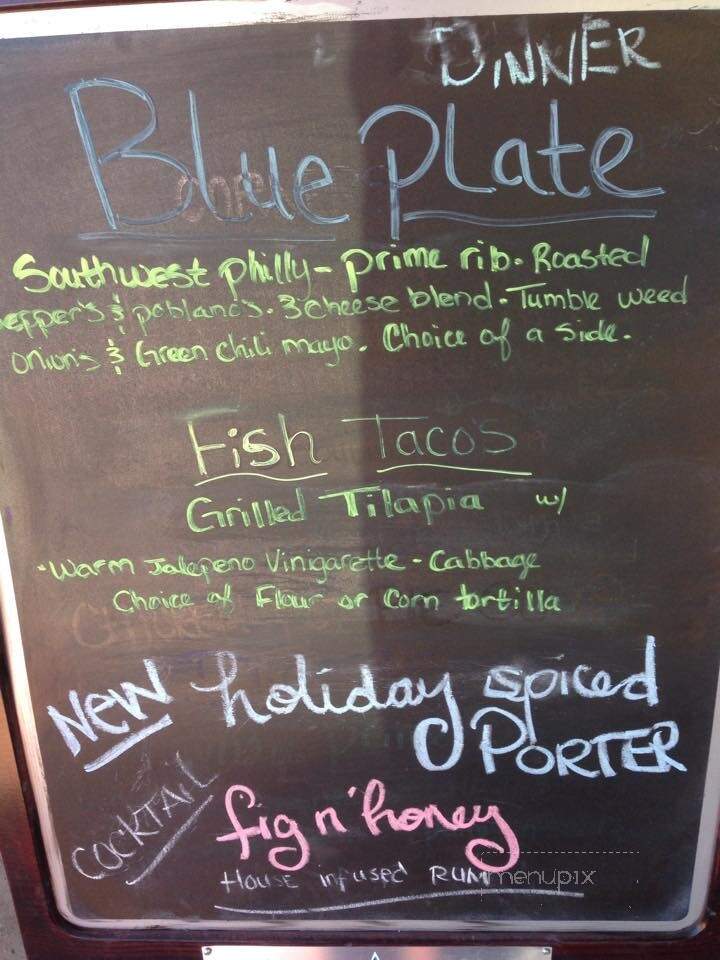 DINNER
Blue Plate
Southwest philly - prime rib. Roasted
epper's & poblano's. 3 cheese blend. Tumble weed
onion's & Green chili mayo. Choice of a side.
Fish Tacos
Grilled Tilapia w/
-Warm Jalepeno Vinigarette - Cabbage
Choice of Flour or Corn tortilla
NEW holiday spiced
PORTER
COCKTAIL fig n' honey
House infused RUM
menupix